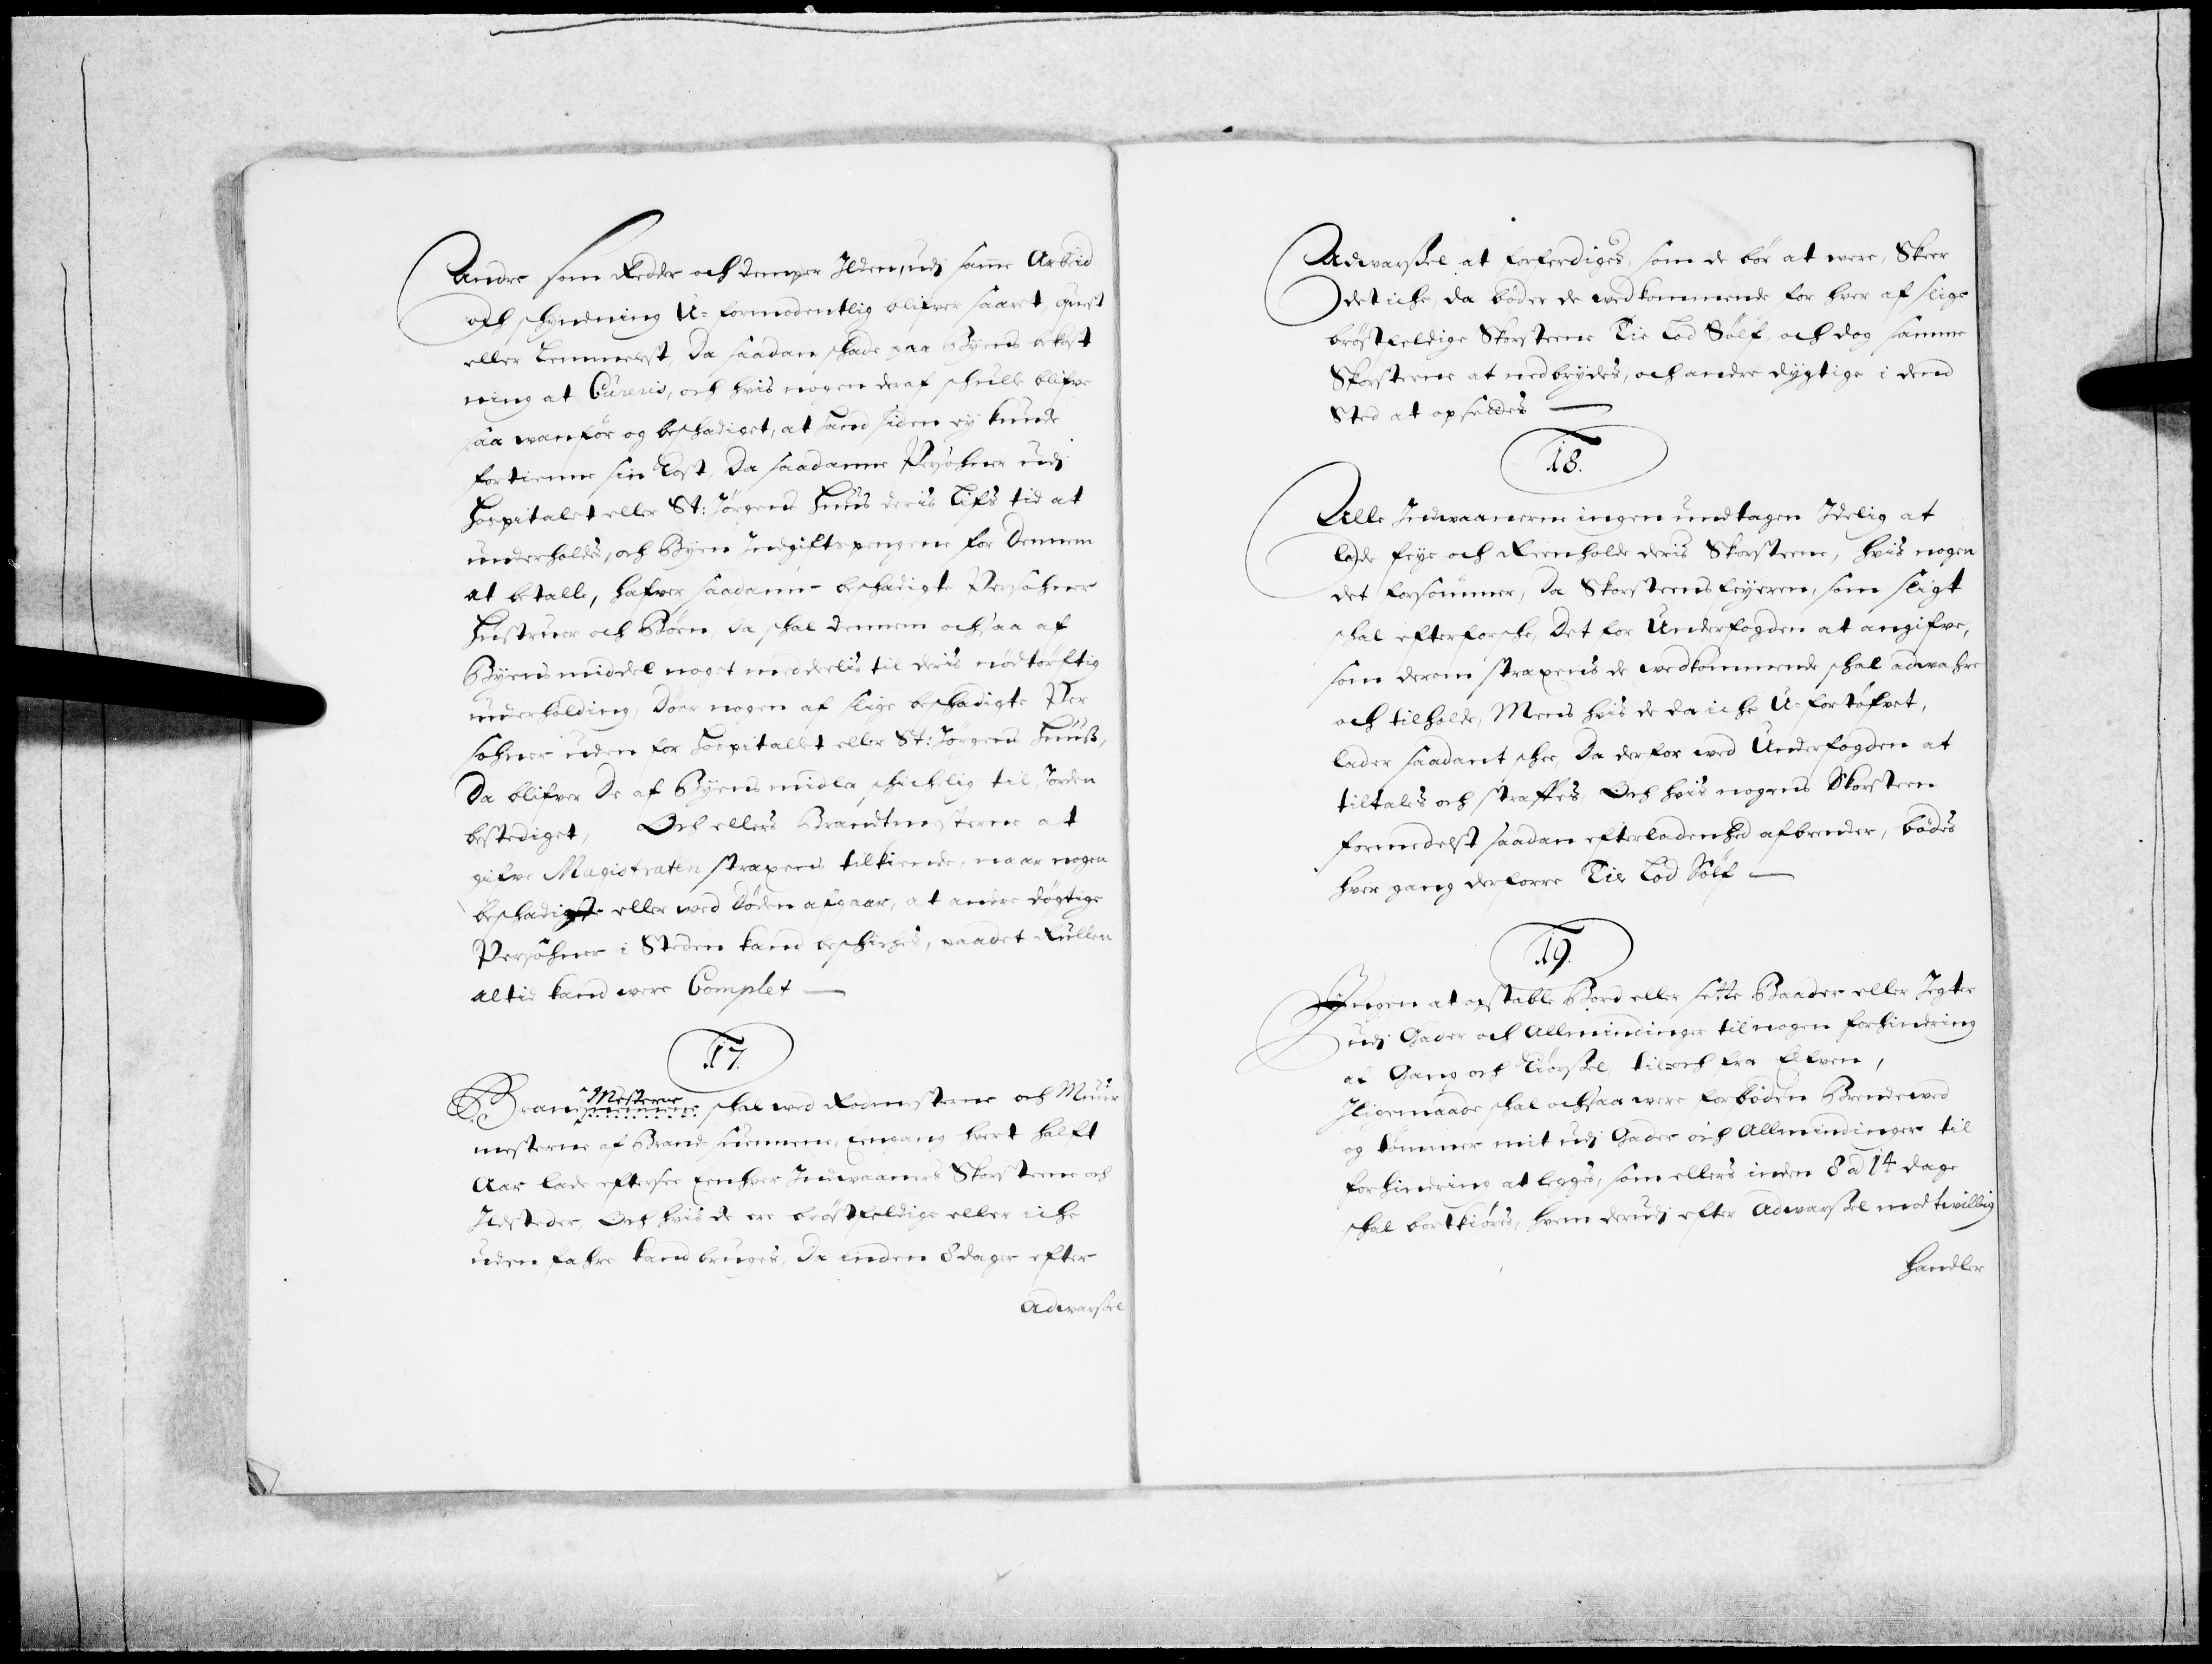 Andre som Redder och demper Ilden, udj samme Arbeid
och schyndning U-formodentlig blifver saaret, quest
eller Lemmelest, Da saadan schade paa Byens bekost
ning at Cureris, och hvis nogen deraf schulle blifve
saa wanfør og beschadiget, at hand siden ey kunde
fortienne sin Kost, Da saadanne Persohner udj
Hospitalet eller St: Jørgens Huus deris Lifs tid at
underholdes, och Byen Indgifts pengene for Dennem
at betalle, hafver saadanne beschadigte Persohner
Hustruer och Børn, da schal dennem ochsaa af
Byens middel noget meddeelis til deris nødtørftig
underholding, Døer nogen af slige beschadigte Per
sohner uden for Hospitallet eller St: Jørgens Huuß,
Da blifver De af Byens midler schichelig til Jorden
bestediget, Och ellers Brandtmesterne at
gifve Magistraten strax tilkiende, naar nogen
beschadigste eller ved Døden afgaar, at andre døgtige
Persohner i Steden kand beschiches, paadet Rullen
altid kand were Complet
17.
Brand Mesterne schal med Rodmesterne och Muur
mesterne af Brand suennene, Eengang hvert halft
Aar lade eftersee Eenhver Indwaaners Skorsteene och
Ildsteder, Och hvis de ere brøstfeldige eller iche
uden fahre kand bruges, Da inden 8 dage efter
Adwarsel
Adwarsel at forferdiges, som de bør at were, Skeer
det iche, da bøder de wedkommende for hver af slige
brøstfeldige Skorsteene Tie Lod Sølf, och dog samme
Skorsteene at nedbrydes, och andre dygtige i dend
Sted at opsettes
18.
Alle Indwaanerne ingen undtagen Idelig at
lade feye och Reenholde deris Skorsteene, hvis nogen
det forsømmer, Da Skorsteensfeyeren, som sligt
schal efterforsche, Det for Underfogden at angifve,
som derom straxens de wedkommende schal adwahre
och tilholde, Mens hvis de da iche U-fortøfvet,
lader saadant schee, Da derfor wed Underfogden at
tiltales och straffes, Och hvis nogens Skorsteen
formedelst saadan efterladenhed afbrender, bødes
hver gang derforre Tie Lod Sølf
19.
Ingen at opstable Bord eller sette Baader eller Jegter
udj Gader och Allmindinger til nogen forhindring
af Gang och Kiørsel, til och fra Elfven,
Iligemaade schal ochsaa were forböden Brendewed
og tømmer mit udj Gader och Allmindinger til
forhindring at legges, som ellers inden 8 a 14 dage
schal bortkiøres, hvem derudj efter Adwarsel modtwillig
handler